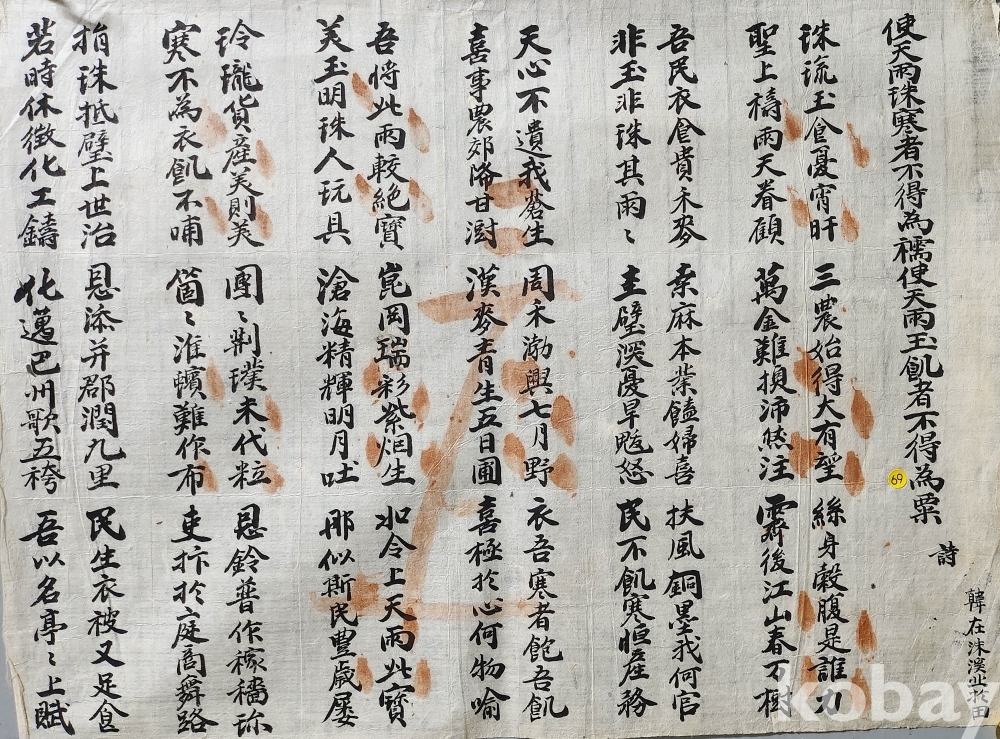 使天雨珠寒者不得為襦使天雨玉飢者不得為粟
詩
韓在洙
69
珠琉玉食憂宵旰 三農始得大有 絲身穀腹是誰力
聖上禱雨天眷顧 萬金難換沛然注 霽後江山春万樹
吾民衣食貴禾麥 桒麻本業饁婦喜 扶風銅墨我何官
非玉非珠其雨〻 圭璧深憂旱魃怒 民不飢寒恒產務
天心不遺我蒼生 周禾渤興七月野 衣吾寒者飽吾飢
喜事農郊降甘澍 漢麥青生五日圃 喜極於心何物喻
吾將此雨較絕寶 崑岡瑞彩紫烟生 如今上天雨此寶
美玉明珠人玩具 滄海精輝明月吐 那似斯民豊歲屢
玲瓏貨產美則美 團〻剖璞未代粒 恩鈴普作稼穡珎
寒不為衣飢不哺 箇〻淮蠙難作布 吏抃於庭商舞路
捐珠抵璧上世治 恩添并郡潤九里 民生衣被又足食
若時休徵化工鑄 化邁巴州歌五袴 吾以名亭〻上賦
kobay